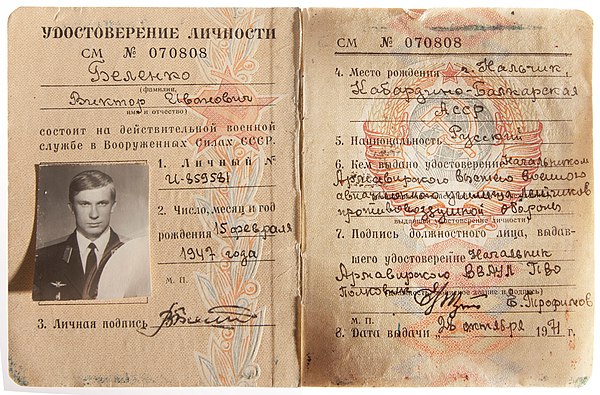 УДОСТОВЕРЕНИЕ ЛИЧНОСТИ
СМ № 070808
Беленко
(фамилия,
Виктор Иванович
имя и отчество)
состоит на действительной военной
службе в Вооруженных Силах СССР.
1. Личный №
И-859581
2. Число, месяц и год
рождения 15 февраля
1947 года
М. П.
3. Личная подпись
СМ № 070808
4. Место рождения г. Нальчик,
Кабардино-Балкарская
АССР
5. Национальность Русский
6. Кем выдано удостоверение Начальником
Армавирского высшего военного
авиационного училища летчиков
противовоздушной обороны
выдавшей удостоверение личности)
7. Подпись должностного лица, выдав-
шего удостоверение Начальник
Армавирского ВВАУЛ ПВО
Полковник Б. Трофимов
звание и подпись)
М. П.
8. Дата выдачи „26 октября 1971 г.